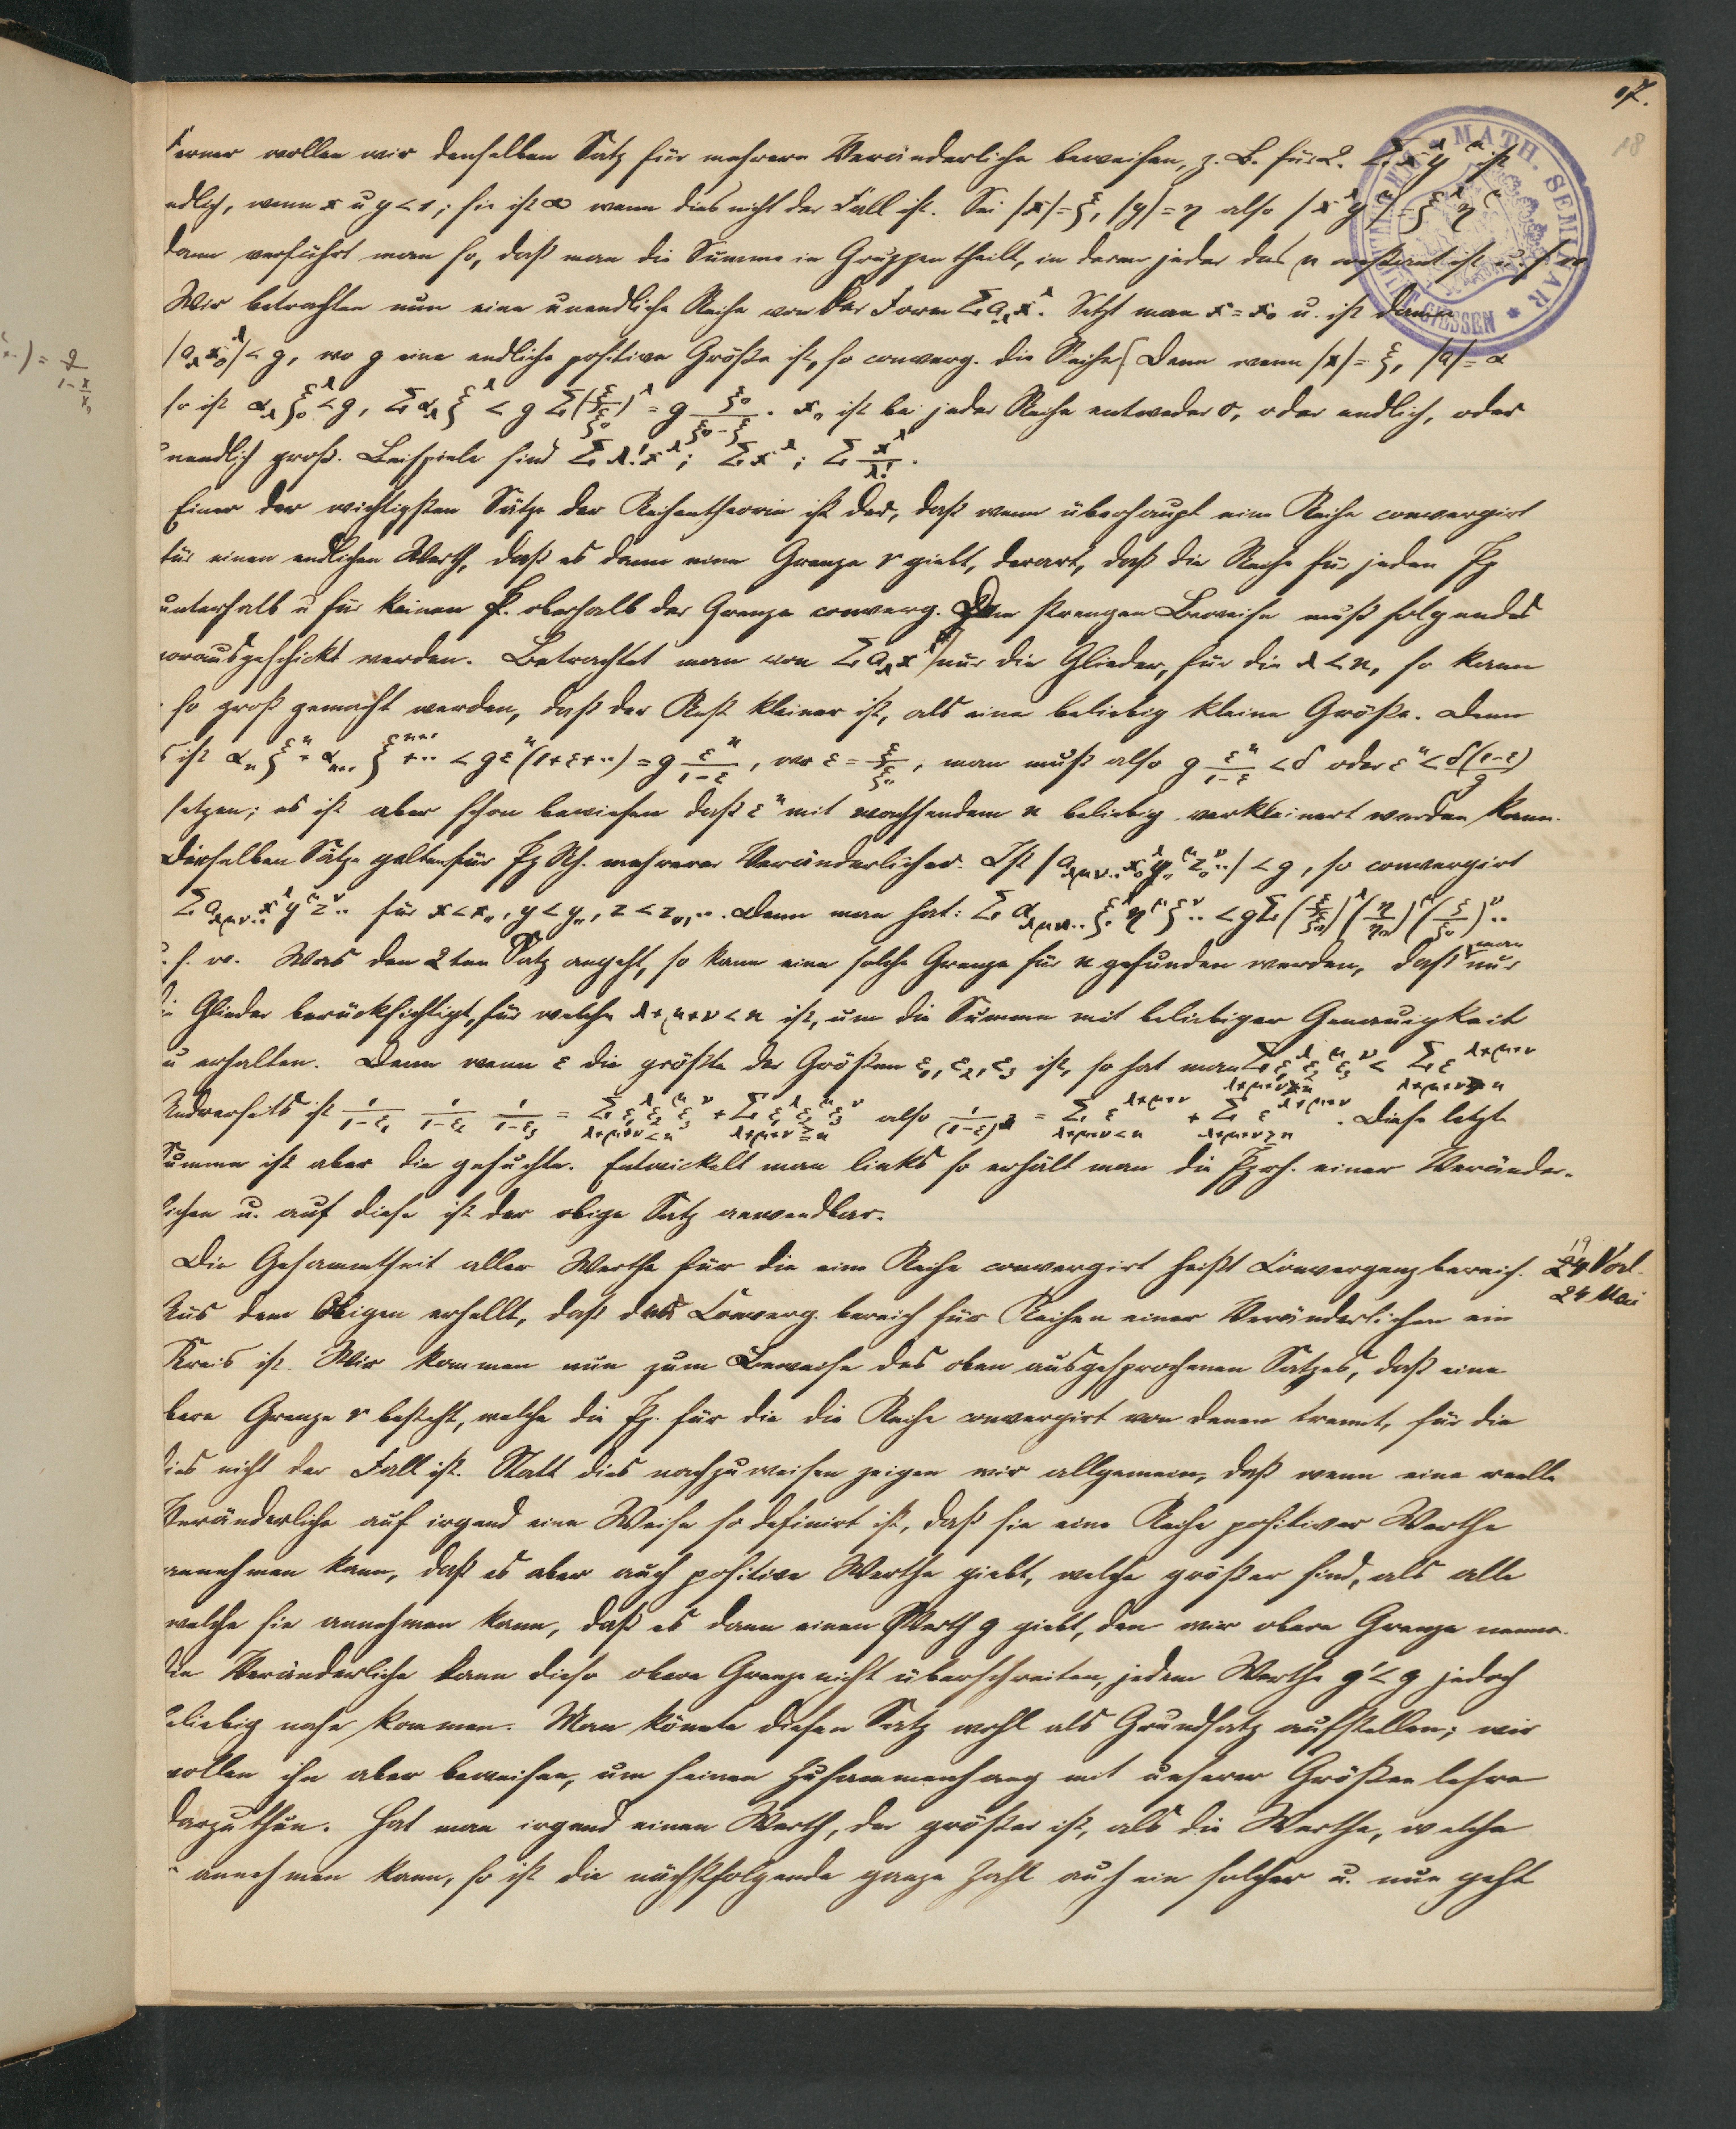 17.
18
MATH. SEMINAR
GIESSEN
Ferner wollen wir denselben Satz für mehrere Veränderliche beweisen, z. B. für 2. Σ x^λ y^μ ist
endlich, wenn x u y < 1; sie ist ∞ wenn dies nicht der Fall ist. Sei |x| = ξ, |y| = η also |x^λ y^μ| = ξ^λ η^μ
dann verfährt man so, daß man die Summe in Gruppen theilt, in deren jeder das μ constant ist u. s. w.
Wir betrachten nun eine unendliche Reihe von der Form Σ a_λ x^λ. Setzt man x = x₀ u. ist dann
|a_λ x₀^λ| < g, wo g eine endliche positive Größe ist, so converg. die Reihe. Denn wenn |x| = ξ, |a| = α
so ist α_λ ξ₀^λ < g, Σ α_λ ξ^λ < g Σ (ξ/ξ₀)^λ = g ξ₀/(ξ₀-ξ). x₀ ist bei jeder Reihe entweder 0, oder endlich, oder
unendlich groß. Beispiele sind Σ λ! x^λ; Σ x^λ; Σ x^λ/λ!.
Einer der wichtigsten Sätze der Reihentheorie ist der, daß wenn überhaupt eine Reihe convergirt
für einen endlichen Werth, daß es dann eine Grenze r giebt, derart, daß die Reihe für jeden Pkt
unterhalb u für keinen P. oberhalb der Grenze converg. Dem strengen Beweise muß folgendes
vorausgeschickt werden. Betrachtet man von Σ a_λ x^λ nur die Glieder, für die λ < n, so kann
so groß gemacht werden, daß der Rest kleiner ist, als eine beliebig kleine Größe. Denn
ist α_n ξ^n + α_{n+1} ξ^{n+1} + ·· < g ε^n (1+ε+··) = g ε^n/(1-ε), wo ε = ξ/ξ₀, man muß also g ε^n/(1-ε) < δ oder ε^n < δ(1-ε)/g
setzen; es ist aber schon bewiesen daß ε^n mit wachsendem n beliebig verkleinert werden kann.
Dieselben Sätze gelten für mehrerer Veränderlicher. Ist |a_{λμν··} x₀^λ y₀^μ z₀^ν··| < g, so convergirt
Σ a_{λμν··} x^λ y^μ z^ν·· für x < x₀, y < y₀, z < z₀, ··. Denn man hat: Σ α_{λμν··} ξ^λ η^μ ζ^ν·· < g Σ (ξ/ξ₀)^λ (η/η₀)^μ (ζ/ζ₀)^ν··
u. s. w. Was den 2ten Satz angeht, so kann eine solche Grenze für n gefunden werden, daß man nur
die Glieder berücksichtigt, für welche λ+μ+ν < n ist, um die Summe mit beliebiger Genauigkeit
zu erhalten. Denn wenn ε die größte der Größen ε₁, ε₂, ε₃ ist, so hat man Σ_{λ+μ+ν≧n} ε₁^λ ε₂^μ ε₃^ν < Σ_{λ+μ+ν≧n} ε^{λ+μ+ν}
Andrerseits ist 1/(1-ε₁) 1/(1-ε₂) 1/(1-ε₃) = Σ_{λ+μ+ν<n} ε₁^λ ε₂^μ ε₃^ν + Σ_{λ+μ+ν≧n} ε₁^λ ε₂^μ ε₃^ν also 1/(1-ε)^3 = Σ_{λ+μ+ν<n} ε^{λ+μ+ν} + Σ_{λ+μ+ν≧n} ε^{λ+μ+ν}. Diese letzte
Summe ist aber die gesuchte. Entwickelt man links so erhält man die einer Veränder-
lichen u. auf diese ist der obige Satz anwendbar.
Die Gesammtheit aller Werthe für die eine Reihe convergirt heißt Convergenzbereich.
19
Vorl.
24 Mai
Aus dem Obigen erhellt, daß das Converg. bereich für Reihen einer Veränderlichen ein
Kreis ist. Wir kommen nun zum Beweise des oben ausgesprochenen Satzes, daß eine
obere Grenze r besteht, welche die Pkt. für die die Reihe convergirt von denen trennt, für die
dies nicht der Fall ist. Statt dies nachzuweisen zeigen wir allgemein, daß wenn eine reelle
Veränderliche auf irgend eine Weise so definirt ist, daß sie eine Reihe positiver Werthe
annehmen kann, daß es aber auch positive Werthe giebt, welche größer sind, als alle
welche sie annehmen kann, daß es dann einen Werth g giebt, den wir obere Grenze nennen.
Die Veränderliche kann diese obere Grenze nicht überschreiten, jedem Werthe g' < g jedoch
beliebig nahe kommen. Man könnte diesen Satz wohl als Grundsatz aufstellen; wir
wollen ihn aber beweisen, um seinen Zusammenhang mit unserer Größenlehre
darzuthun. Hat man irgend einen Werth, der größer ist, als die Werthe, welche
annehmen kann, so ist die nächstfolgende ganze Zahl auch ein solcher u. nun geht